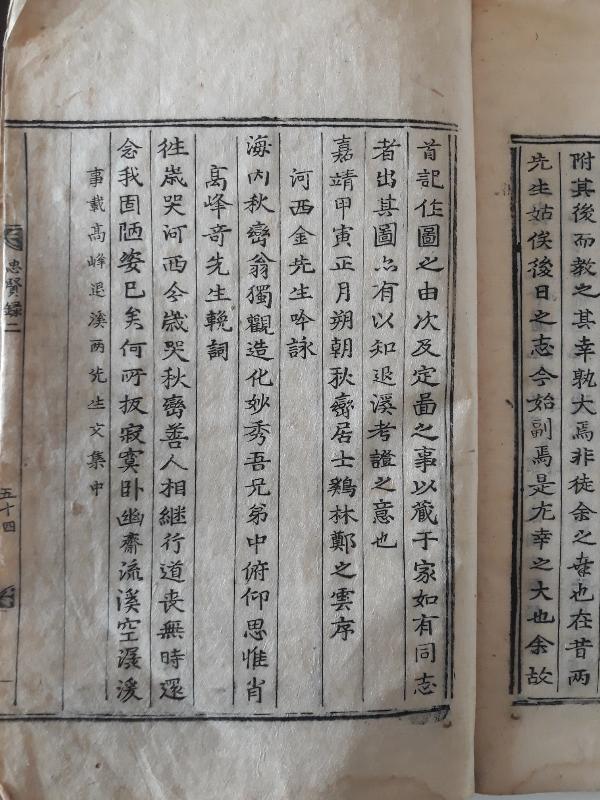 附其後而教之其幸孰大焉非徒余之幸也在昔兩
先生姑俟後日之志今始副焉是尤幸之大也余故
首記作圖之由次及定啚之事以藏于家如有同志
者出其圖尒有以知退溪考證之意也
嘉靖甲寅正月朔朝秋巒居士鷄林鄭之雲序
河西金先生吟詠
海內秋巒翁獨觀造化妙秀吾兄弟中俯仰思惟肖
高峰奇先生輓詞
徃歲哭河西今歲哭秋巒善人相継行道丧無時還
念我固陋姿已矣何所扳寂寞卧幽齋流溪空潺湲
事載高峰退溪兩先生文集中
忠賢錄二
五十四